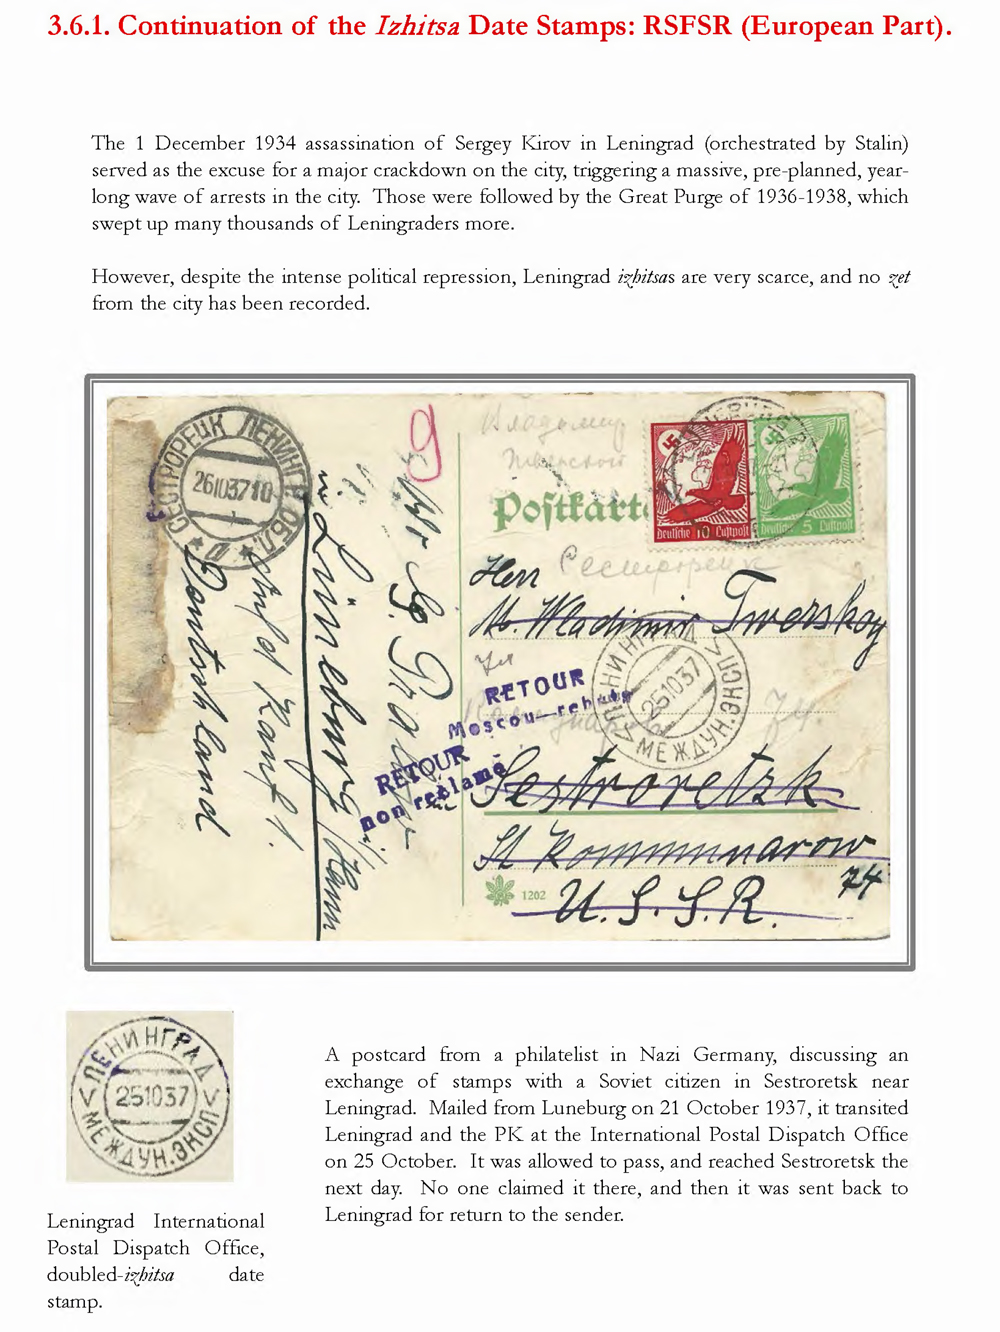 3.6.1. Continuation of the Izhitsa Date Stamps: RSFSR (European Part).
The 1 December 1934 assassination of Sergey Kirov in Leningrad (orchestrated by Stalin)
served as the excuse for a major crackdown on the city, triggering a massive, pre-planned, year-
long wave of arrests in the city. Those were followed by the Great Purge of 1936-1938, which
swept up many thousands of Leningraders more.
However, despite the intense political repression, Leningrad izhitsas are very scarce, and no zet
from the city has been recorded.
СЕСТРОРЕЦК ЛЕНИНГР. ОБЛ.
26103710
9
Владимир
Тверской
Postkarte
Deutsche 10 Luftpost
Deutsche 5 Luftpost
Сестрорецк
Herr
M. Wladimir Twerskoy
RETOUR
Moscou-rebuts
ЛЕНИНГРАД
251037
МЕЖДУН.ЭКСП
74.
RETOUR
non réclamé
Sestroretzk
St Kommunarow
74
U.S.S.R.
1202
Lüneburg
Deutschland
ЛЕНИНГРАД
251037
МЕЖДУН.ЭКСП
A postcard from a philatelist in Nazi Germany, discussing an
exchange of stamps with a Soviet citizen in Sestroretsk near
Leningrad. Mailed from Luneburg on 21 October 1937, it transited
Leningrad and the PK at the International Postal Dispatch Office
on 25 October. It was allowed to pass, and reached Sestroretsk the
next day. No one claimed it there, and then it was sent back to
Leningrad for return to the sender.
Leningrad International
Postal Dispatch Office,
doubled-izhitsa date
stamp.